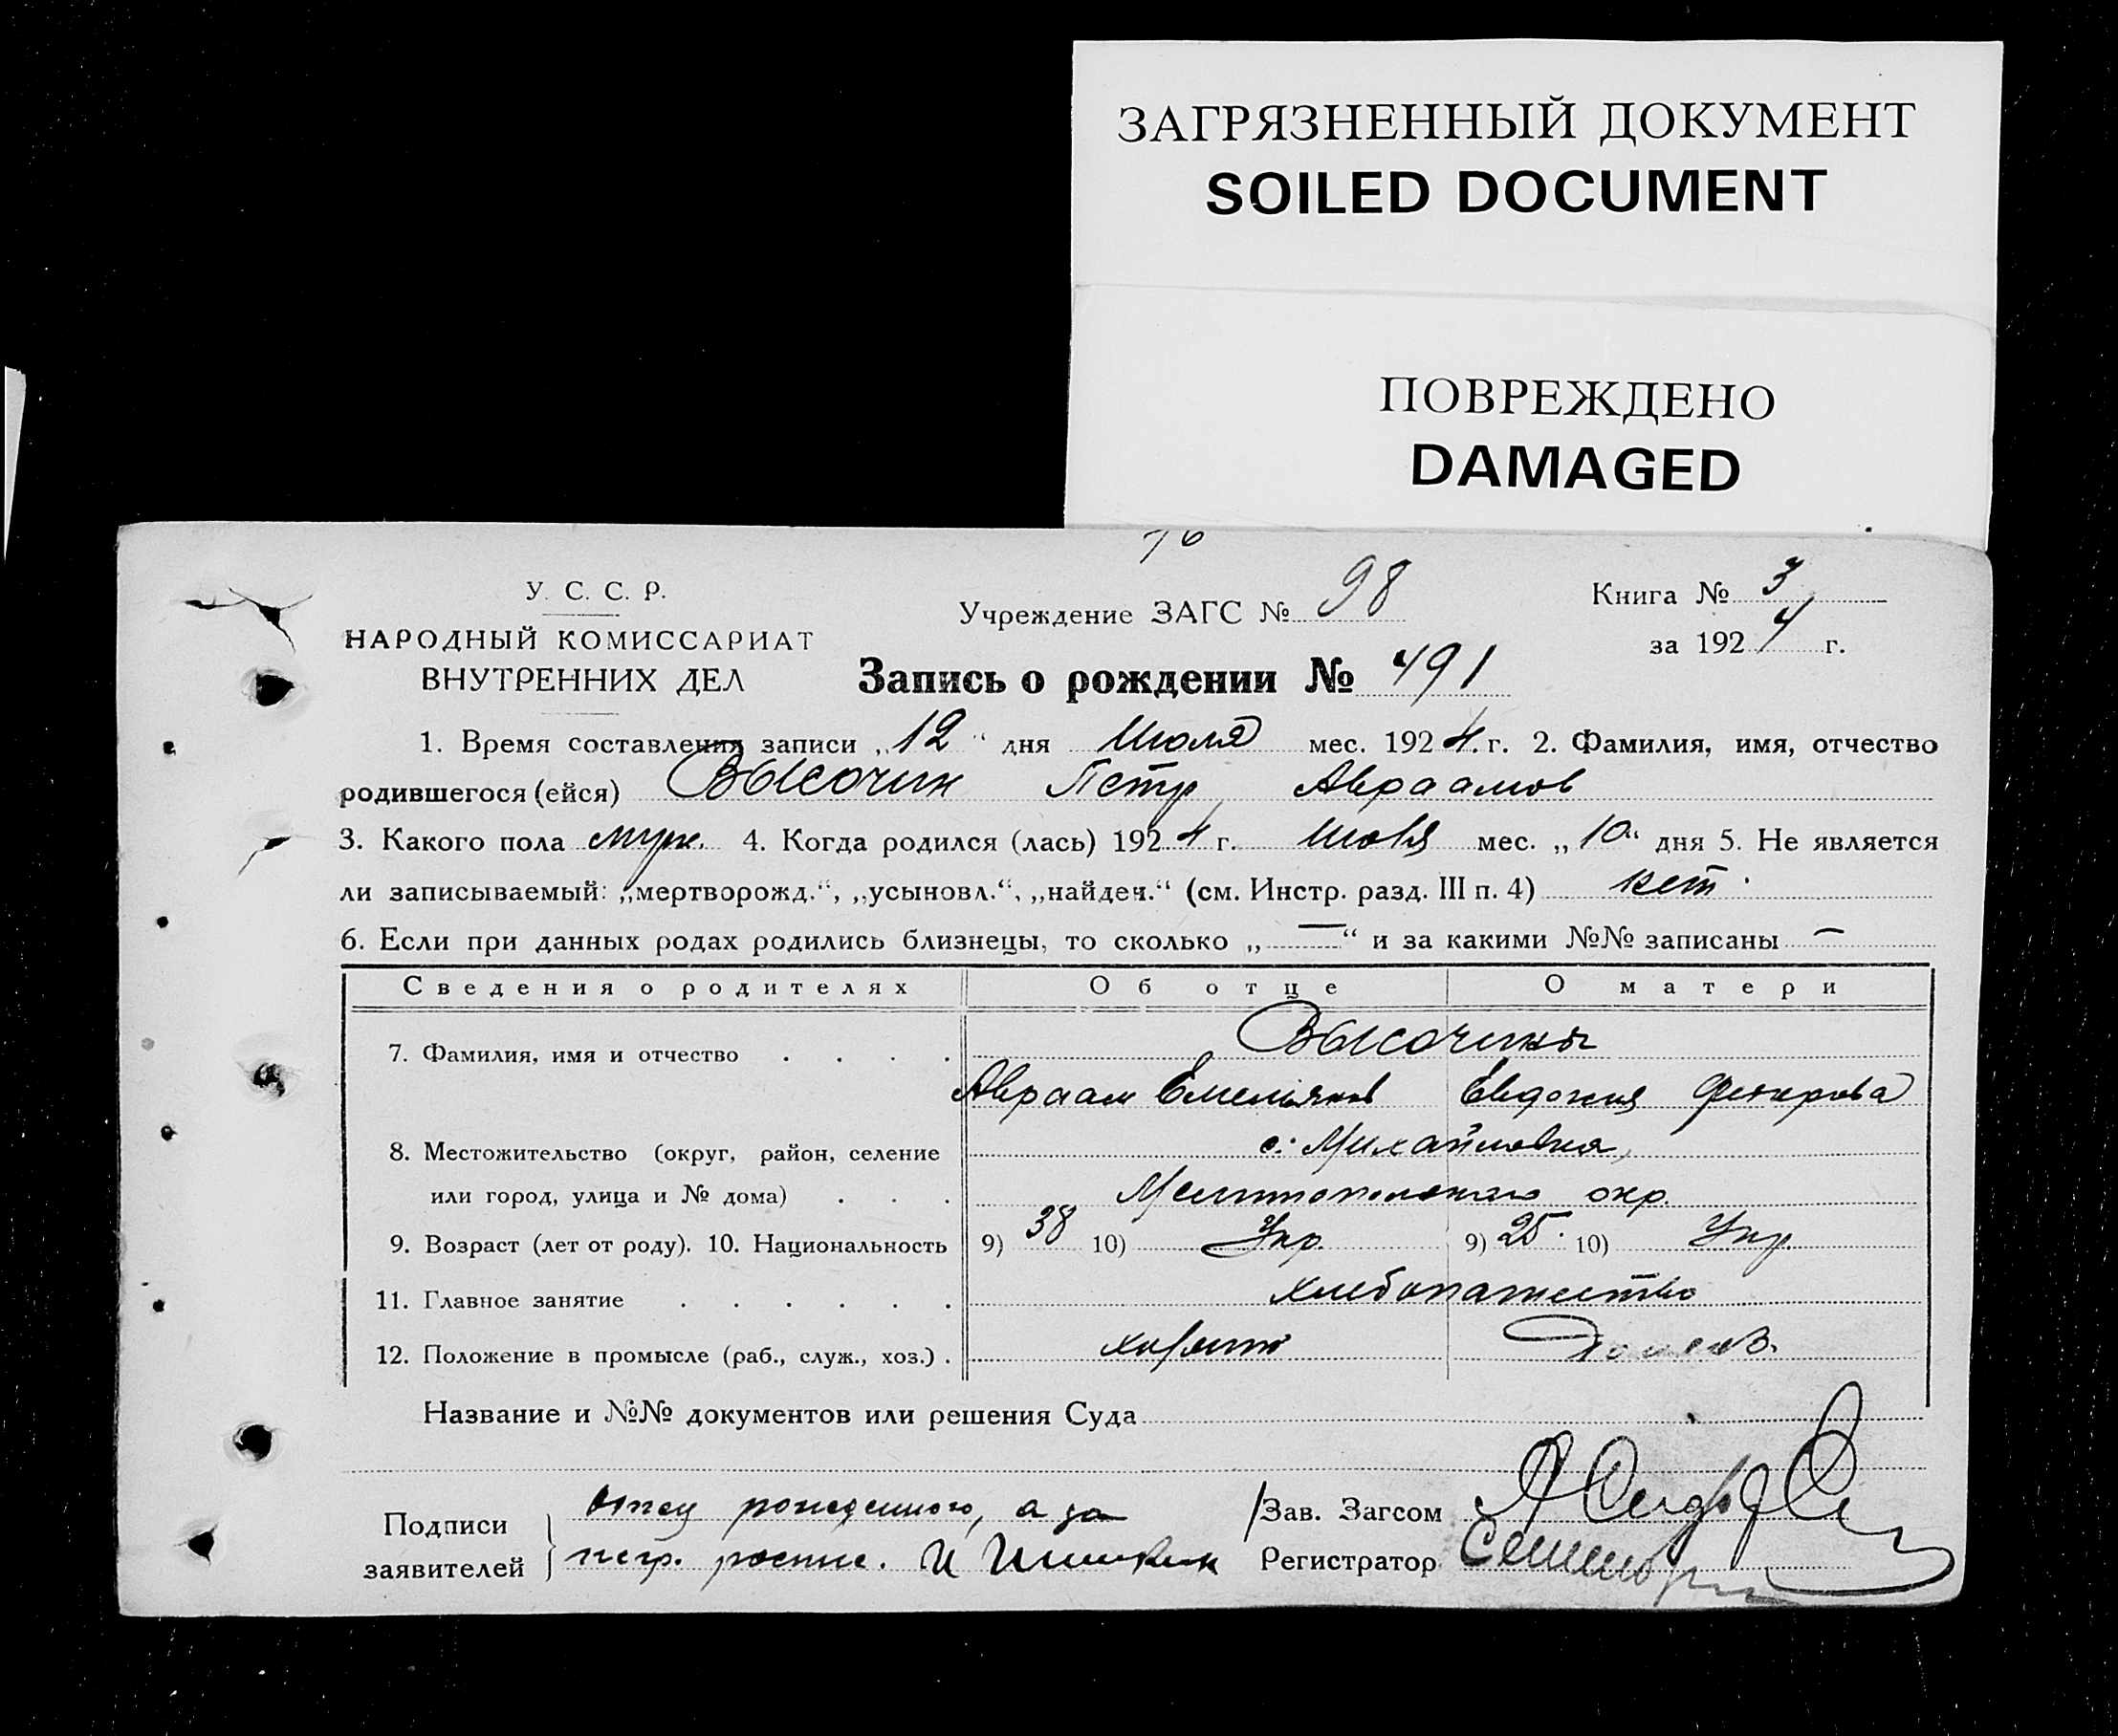 ЗАГРЯЗНЕННЫЙ ДОКУМЕНТ
SOILED DOCUMENT
ПОВРЕЖДЕНО
DAMAGED
У. С. С. Р.
НАРОДНЫЙ КОМИССАРИАТ
ВНУТРЕННИХ ДЕЛ
Учреждение ЗАГС № 98
Книга № 3
за 1924 г.
Запись о рождении № 491
1. Время составления записи „12“ дня Июля мес. 1924 г. 2. Фамилия, имя, отчество
родившегося (ейся) Высочин Петр Авраамов
3. Какого пола муж. 4. Когда родился (лась) 1924 г. мес. „10“ дня 5. Не является
ли записываемый: „мертворожд.“, „усыновл.“, „найден.“ (см. Инстр. разд. III п. 4) нет
6. Если при данных родах родились близнецы, то сколько „—“ и за какими №№ записаны —
Сведения о родителях Об отце О матери
7. Фамилия, имя и отчество . . . . Высочины
Авраам Емельянов Евдокия
8. Местожительство (округ, район, селение с. Михайловка,
или город, улица и № дома) . . . Мелитопольского окр.
9. Возраст (лет от роду). 10. Национальность 9) 38 10) Укр. 9) 25 10) Укр.
11. Главное занятие . . . . . . хлебопашество
12. Положение в промысле (раб., служ., хоз.) .
Название и №№ документов или решения Суда
Подписи заявителей
отец рожденного, а за
негр. роспис. И Шишкин
Зав. Загсом
Регистратор